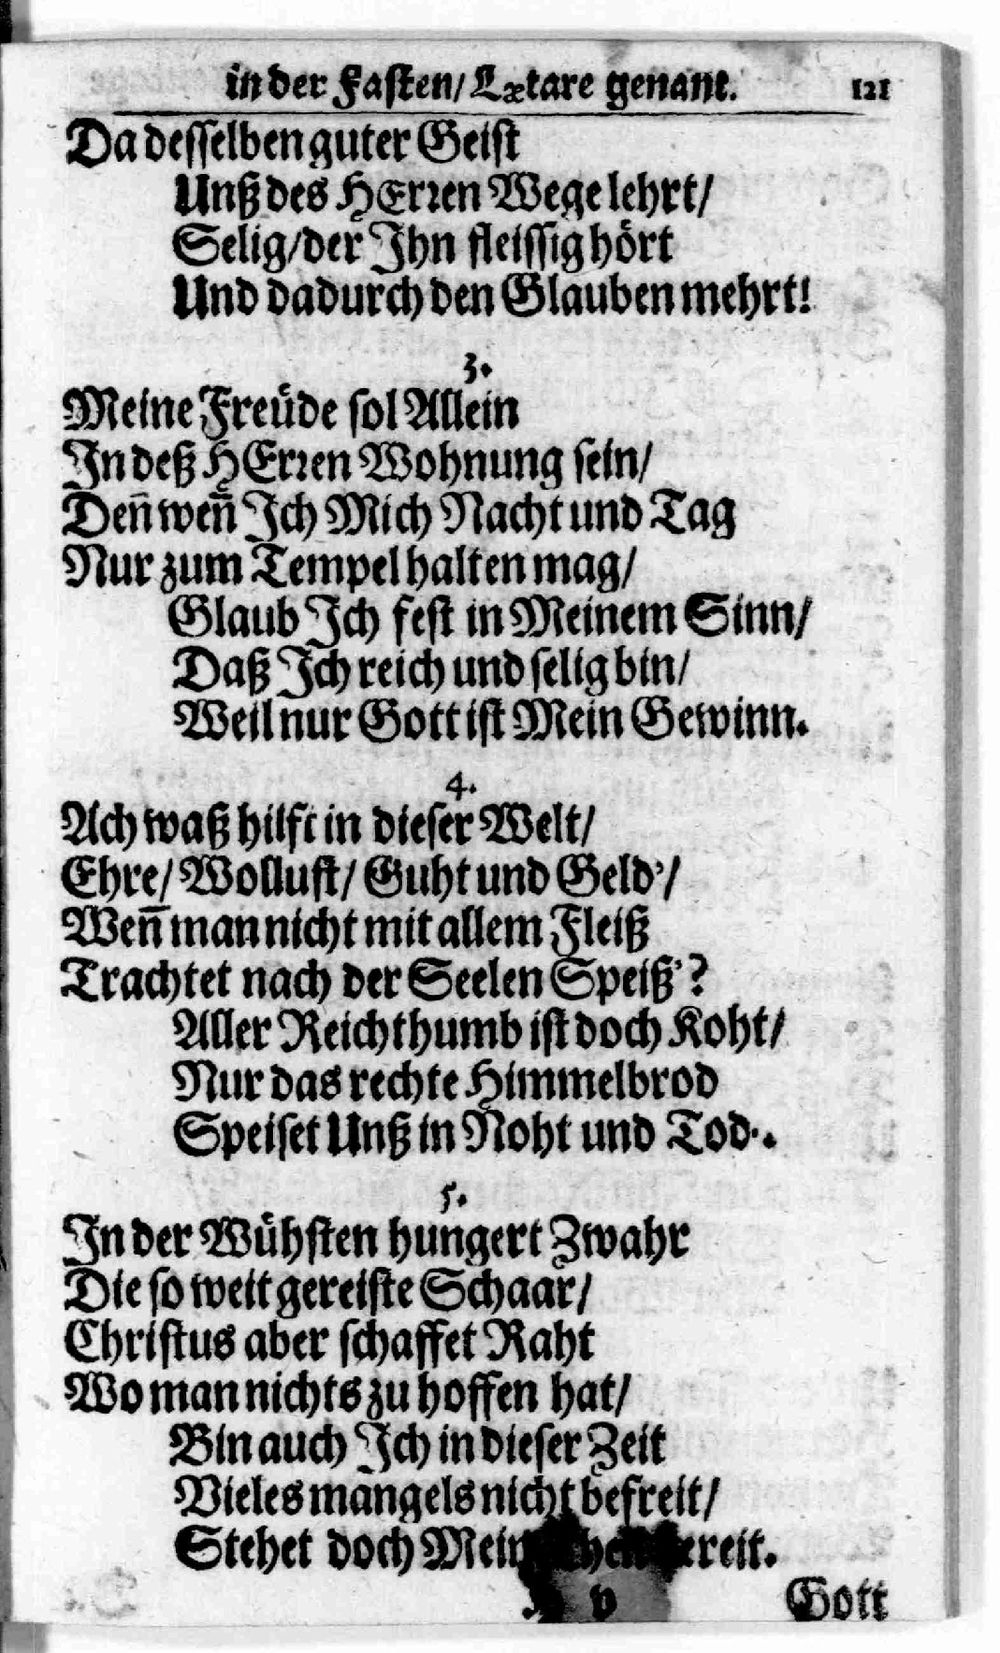 in der Fasten/ Lætare genant. 121
Da desselben guter Geist
Unß des HErren Wege lehrt/
Selig/der Ihn fleissig hört
Und dadurch den Glauben mehrt!
3.
Meine Freüde sol Allein
In deß HErren Wohnung sein/
Deñ weñ Ich Mich Nacht und Tag
Nur zum Tempel halten mag/
Glaub Ich fest in Meinem Sinn/
Daß Ich reich und selig bin/
Weil nur Gott ist Mein Gewinn.
4.
Ach waß hilft in dieser Welt/
Ehre/ Wollust/ Guht und Geld'/
Weñ man nicht mit allem Fleiß
Trachtet nach der Seelen Speiß'?
Aller Reichthumb ist doch Koht/
Nur das rechte Himmelbrod
Speiset Unß in Noht und Tod.
5.
In der Wühsten hungert Zwahr
Die so weit gereiste Schaar/
Christus aber schaffet Raht
Wo man nichts zu hoffen hat/
Bin auch Ich in dieser Zeit
Vieles mangels nicht befreit/
Stehet doch Mein
v Gott